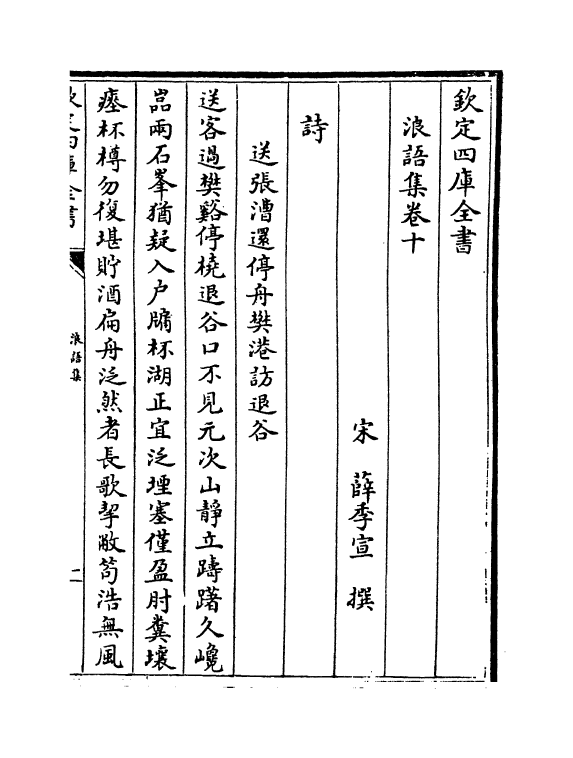 欽定四庫全書
浪語集卷十
宋　薛季宣　撰
詩
送張漕還停舟樊港訪退谷
送客過樊谿停橈退谷口不見元次山靜立躊躇久巉
嵓兩石峯猶疑入戶牖杯湖正宜泛堙塞僅盈肘糞壤
瘞杯樽勿復堪貯酒扁舟泛然者長歌挈敝笱浩無風
欽定四庫全書
浪語集